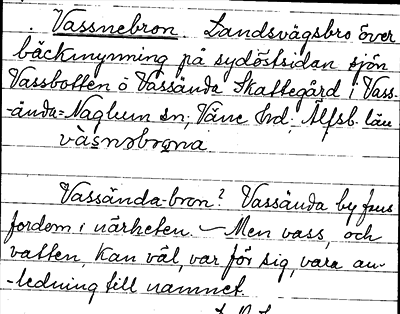 Vassnebron. Landsvägsbro över
bäckmynning på sydöstsidan sjön
Vassbotten å Vassända Skattegård i Vass-
-ända-Naglum sn; Väne hrd; Älfsb. län
vàsnəbroṇa
Vassända-bron? Vassända by fans
fordom i närheten. – Men vass, och
vatten, kan väl, var för sig, vara an-
-ledning till namnet.